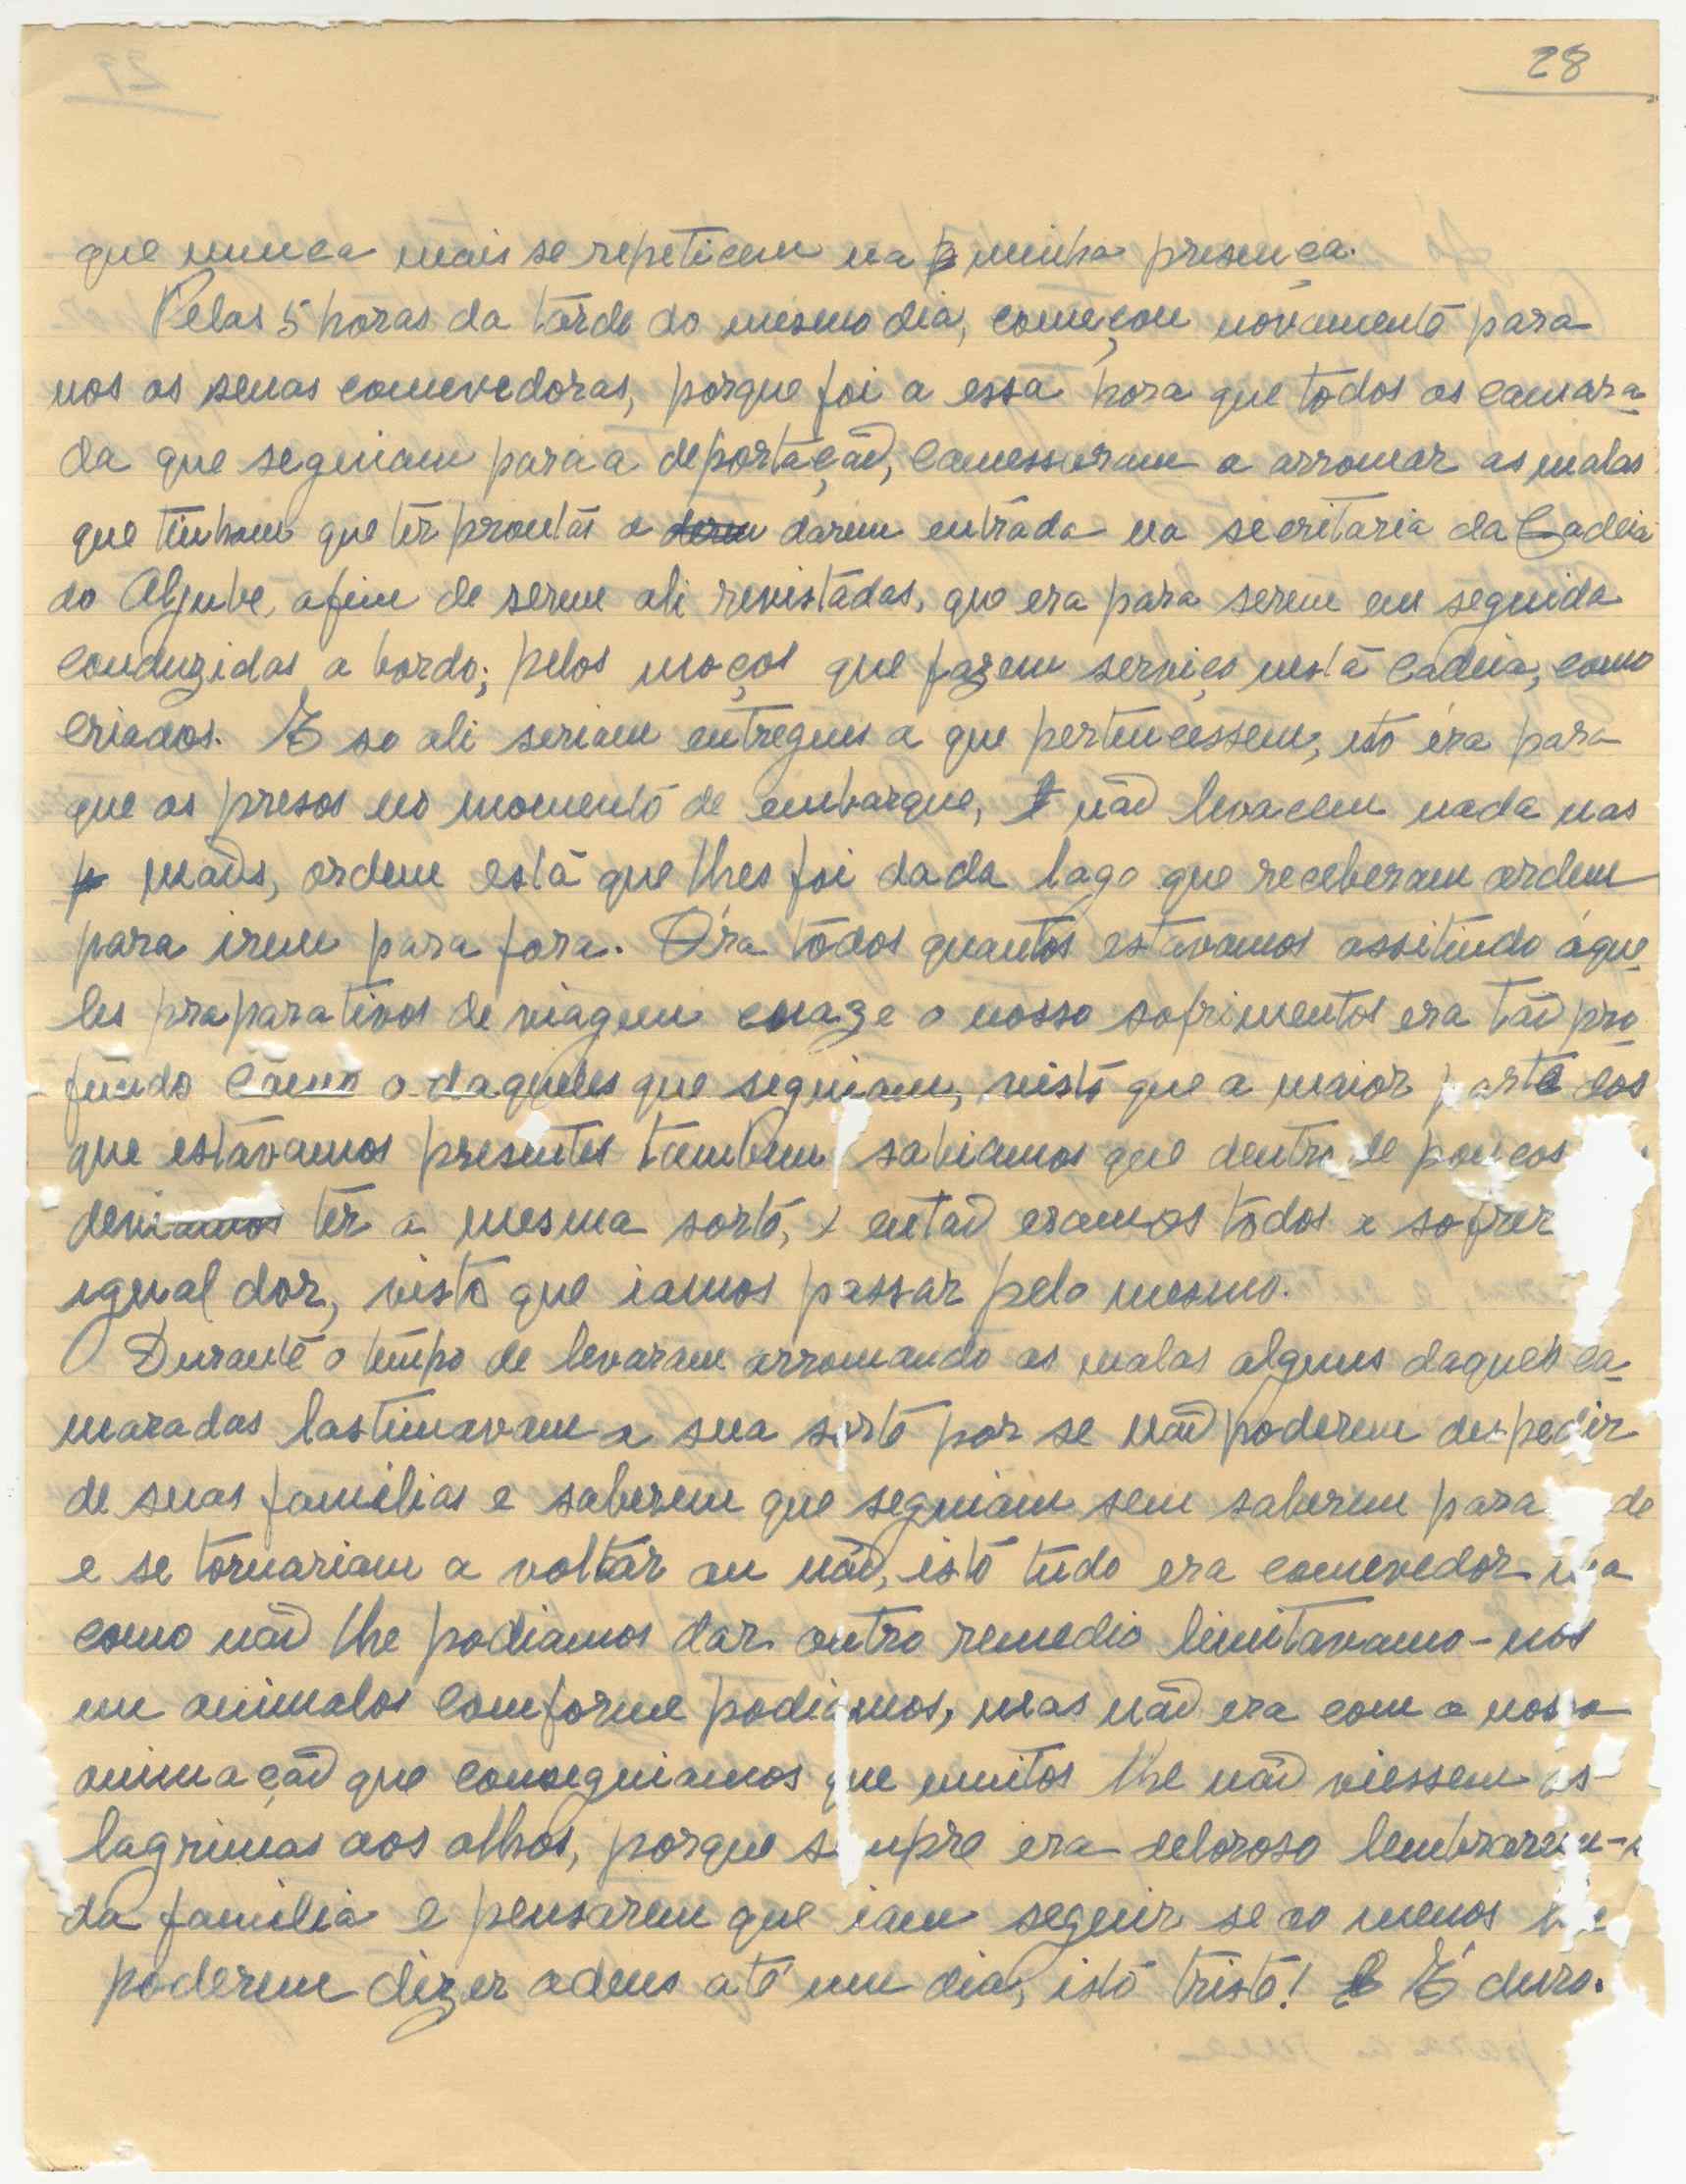 28
que nunca mais se repeticem na minha presença.
Pelas 5 horas da tárde do mesmo dia, começou nóvamente para
nos as senas comevedoras, porque foi a essa hora que todos os camara-
da que seguiam para a deportação, camessaram a arromar as malas
que tinham que têr prontas a darem entráda na secritaria da Cadeia
do Aljube, afim de serem ali revistádas, que era para serem em seguida
conduzidas a bordo; pelos moços que fazem serviço nestá cadeia, como
criados. E so ali seriam entregues a que pertencessem, isto éra para
que os presos no momento de embarque, não levacem nada nas
maõs, ordem está que lhes foi dada lago que receberam ordem
para irem para fora. Óra todos quantos estávamos assitindo áque-
les praparativos de viagem cuaze o nosso sofrimentos era tão pro
fundo como o daqueles que seguiam, visto que a maior parte dos
que estávamos presentes tambem sabiamos que dentro de poucos
deviamos têr a mesma sorté, e então eramos todos a sofrer
igual dor, visto que iamos passar pelo mesmo.
Durante o tempo de levaram arromando as malas alguns daqueles ca-
maradas lastimavam a sua sorte por se não poderem despedir
de suas familias e saberem que seguiam sem saberem para de
e se tornariam a voltar ou não, isto tudo era comevedor
como não lhe podiamos dar outro remedio limitavamo-nos
em animalos comforme podiamos, mas não era com a nossa
animação que conseguiamos que muitos lhe não viessem as
lagrimas aos olhos, porque sempre era deloroso lembrarem-
da familia e pensarem que iam seguir se ao menos
poderem dizer adeus até um dia, isto tristé! É duro.